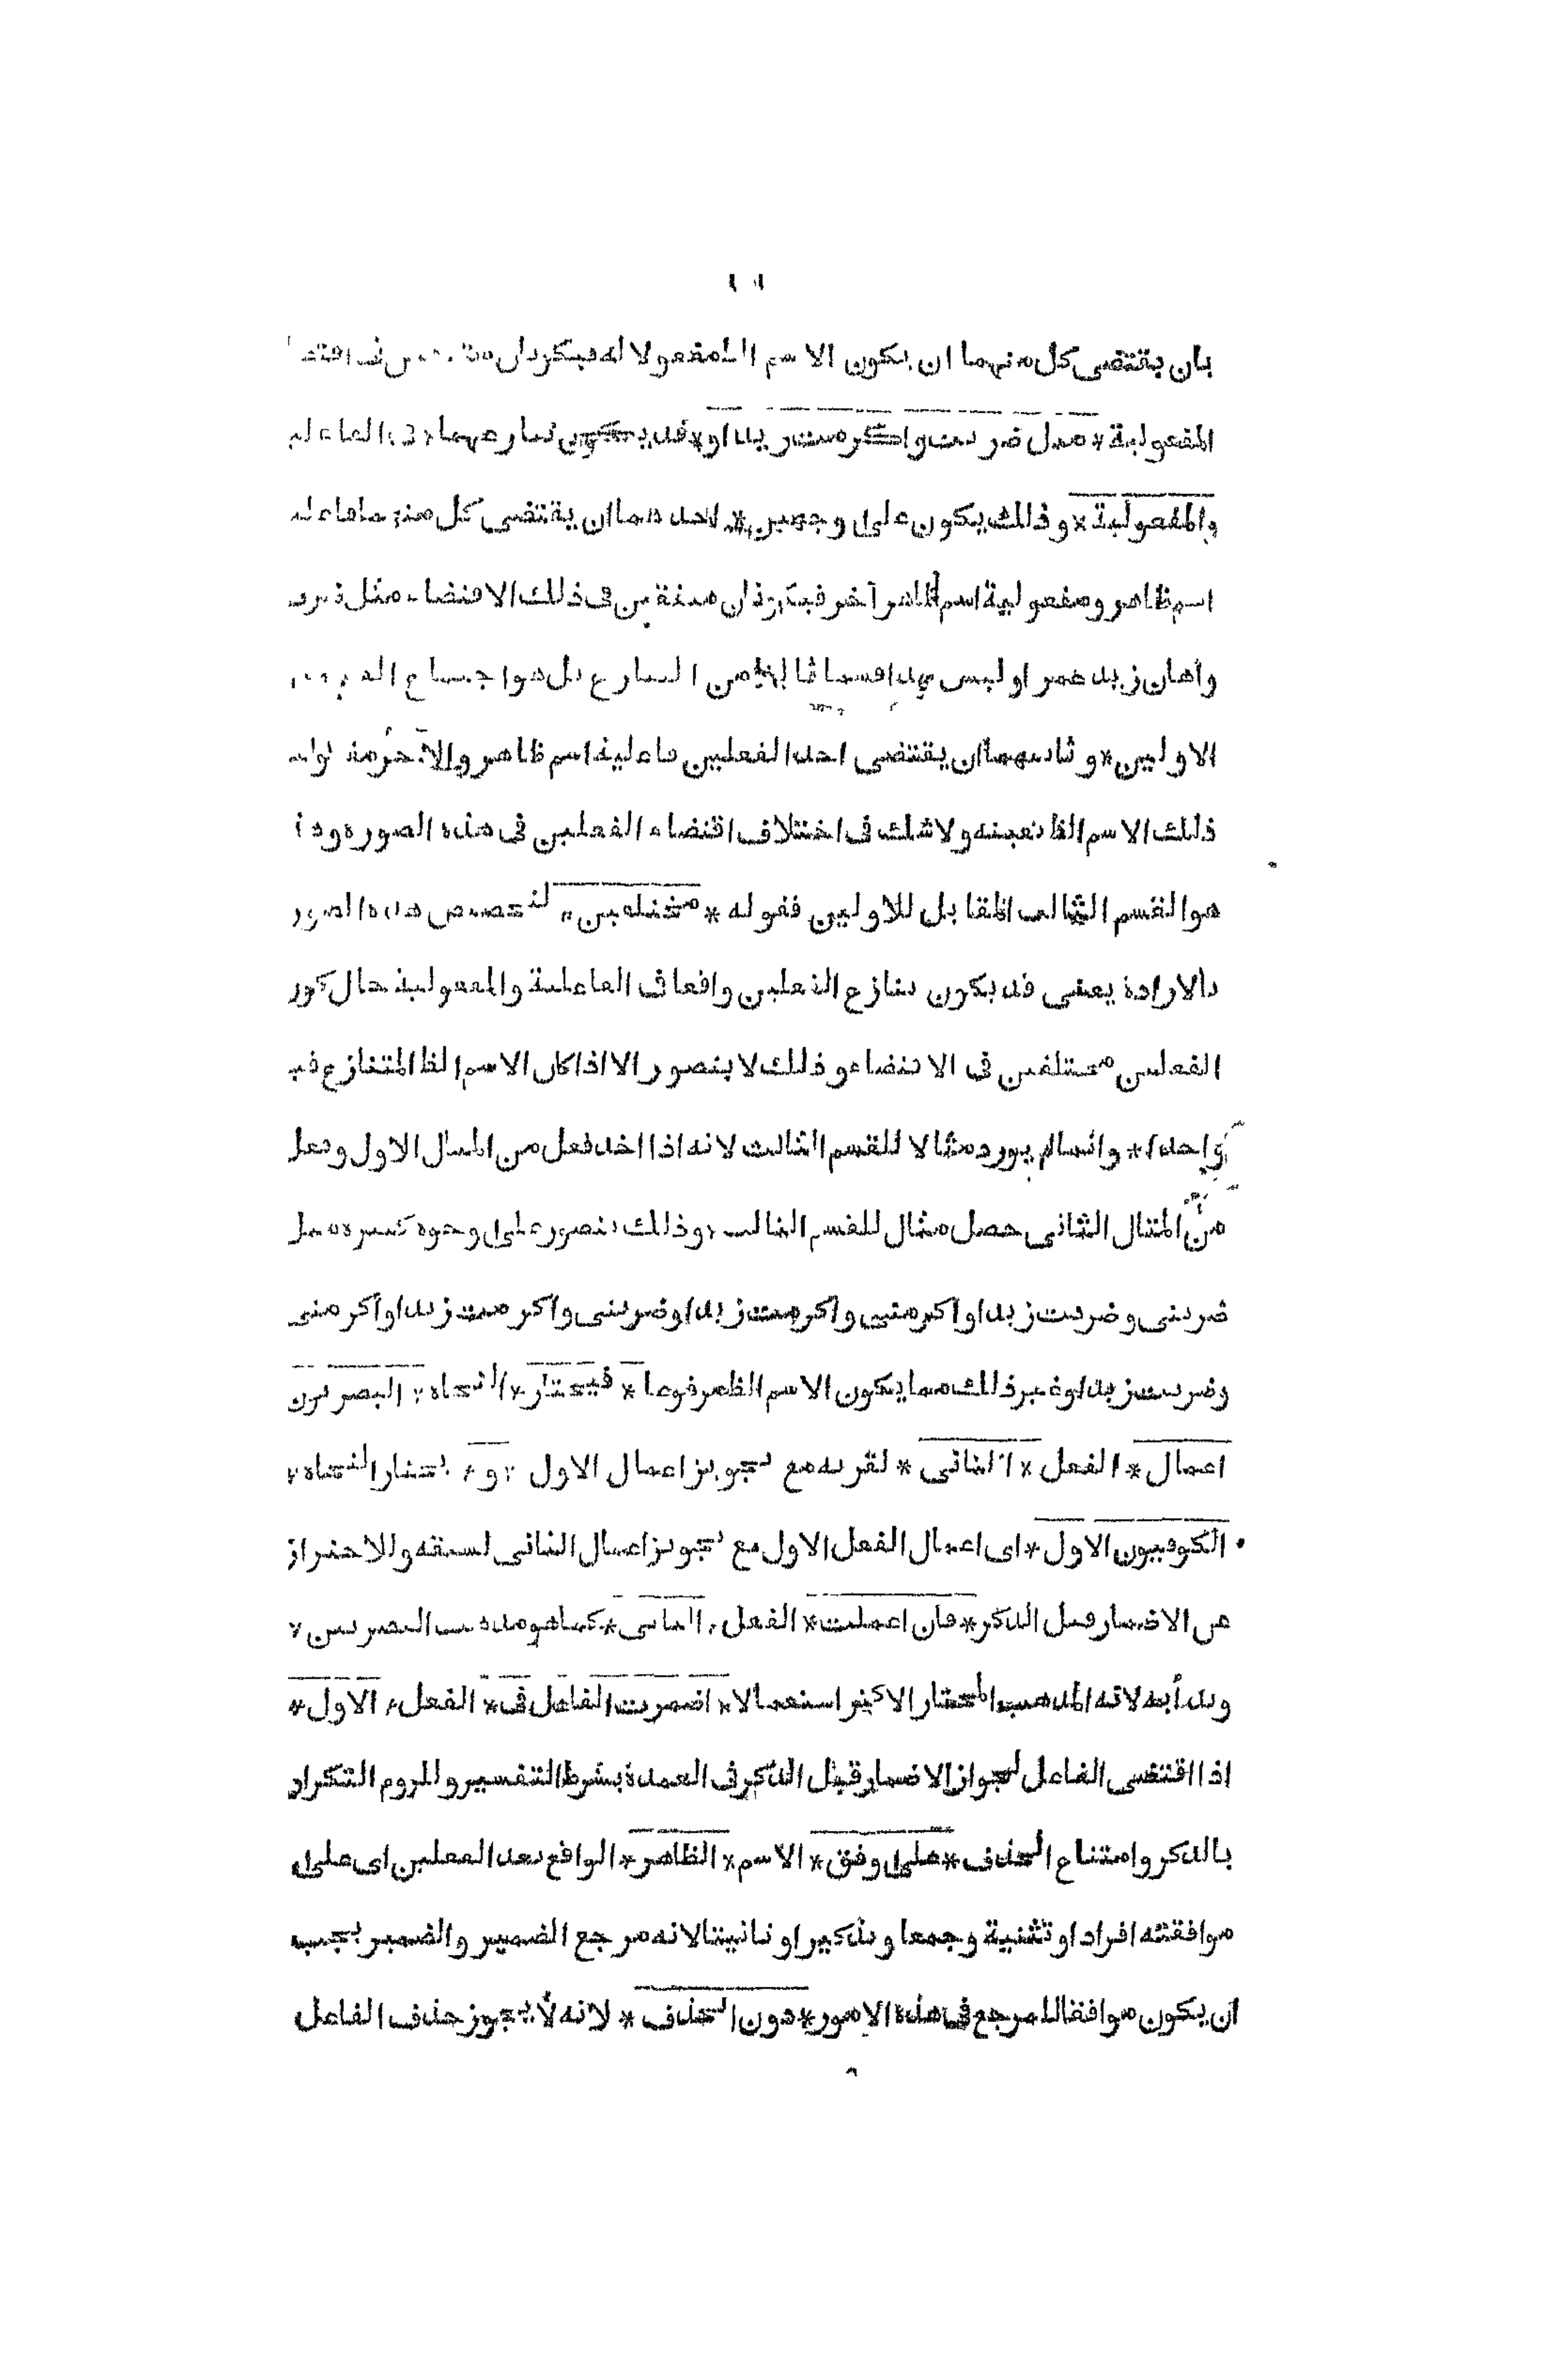 بان يقتضى كل منهما ان يكون الاسم الظ مفعولا له فيكونان متفقين فى اقتضاء
المفعولية * مثل ضربت واكرمت زيدا و * قد يكون تنازعهما * فى الفاعلية
والمفعولية * وذلك يكون على وجهين * احدهما ان يقتضى كل منهما فاعلية
اسم ظاهر ومفعولية اسم ظاهر آخر فيكونان متفقين فى ذلك الاقتضاء مثل ضرب
واهان زيد عمرا وليس هذا قسما ثالثا من التنازع بل هو اجتماع القسمين
الاولين * وثانيهما ان يقتضى احد الفعلين فاعلية اسم ظاهر والآخر مفعولية
ذلك الاسم الظ بعينه ولا شك فى اختلاف اقتضاء الفعلين فى هذه الصورة وهذا
هو القسم الثالث المقابل للاولين فقوله * مختلفين * لتخصيص هذه الصورة
بالارادة يعنى قد يكون تنازع الفعلين واقعا فى الفاعلية والمفعولية حال كون
الفعلين مختلفين فى الاقتضاء وذلك لا يتصور الا اذا كان الاسم الظ المتنازع فيه
واحدا * وانما لم يورد مثالا للقسم الثالث لانه اذا اخذ فعل من المثال الاول وفعل
من المثال الثانى حصل مثال للقسم الثالث وذلك يتصور على وجوه كثيرة مثل
ضربنى وضربت زيدا واكرمنى واكرمت زيدا وضربنى واكرمت زيدا واكرمنى
وضربت زيدا وغير ذلك مما يكون الاسم الظ مرفوعا * فيختار * النحاة * البصريون
اعمال * الفعل * الثانى * لقربه مع تجويز اعمال الاول * و * يختار النحاة *
الكوفييون الاول * اى اعمال الفعل الاول مع تجويز اعمال الثانى لسبقه وللاحتراز
عن الاضمار قبل الذكر * فان اعملت * الفعل * الثانى * كما هو مذهب البصريين *
وبدأ به لانه المذهب المختار الاكثر استعمالا * اضمرت الفاعل فى * الفعل * الاول *
اذا اقتضى الفاعل لجواز الاضمار قبل الذكر فى العمدة بشرط التفسير وللزوم التكرار
بالذكر وامتناع الحذف * على وفق * الاسم * الظاهر * الواقع بعد الفعلين اى على
موافقته افرادا وتثنية وجمعا وتذكيرا وتانيثا لانه مرجع الضمير والضمير يجب
ان يكون موافقا للمرجع فى هذه الامور * دون الحذف * لانه لا يجوز حذف الفاعل